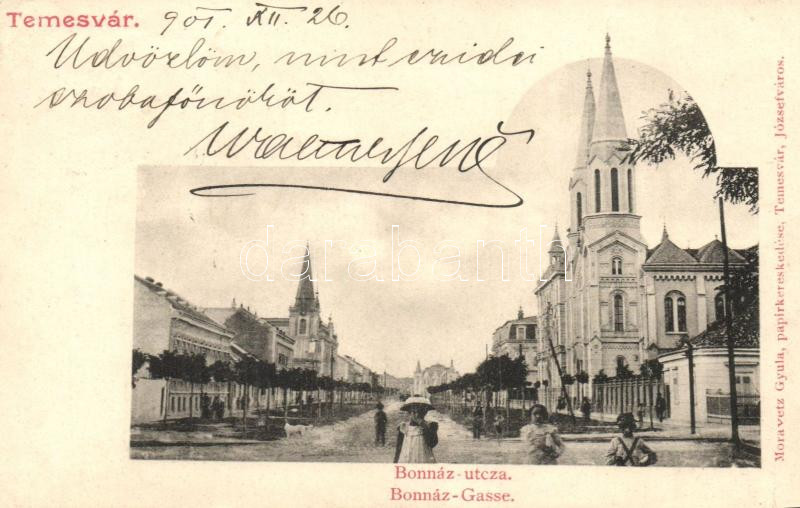 Temesvár. 901. XII. 26.
Üdvözlöm, mint ezidei
szobafőnököt.
darabanth
Bonnáz-utcza.
Bonnáz-Gasse.
Moravetz Gyula, papirkereskedése, Temesvár, Józsefváros.